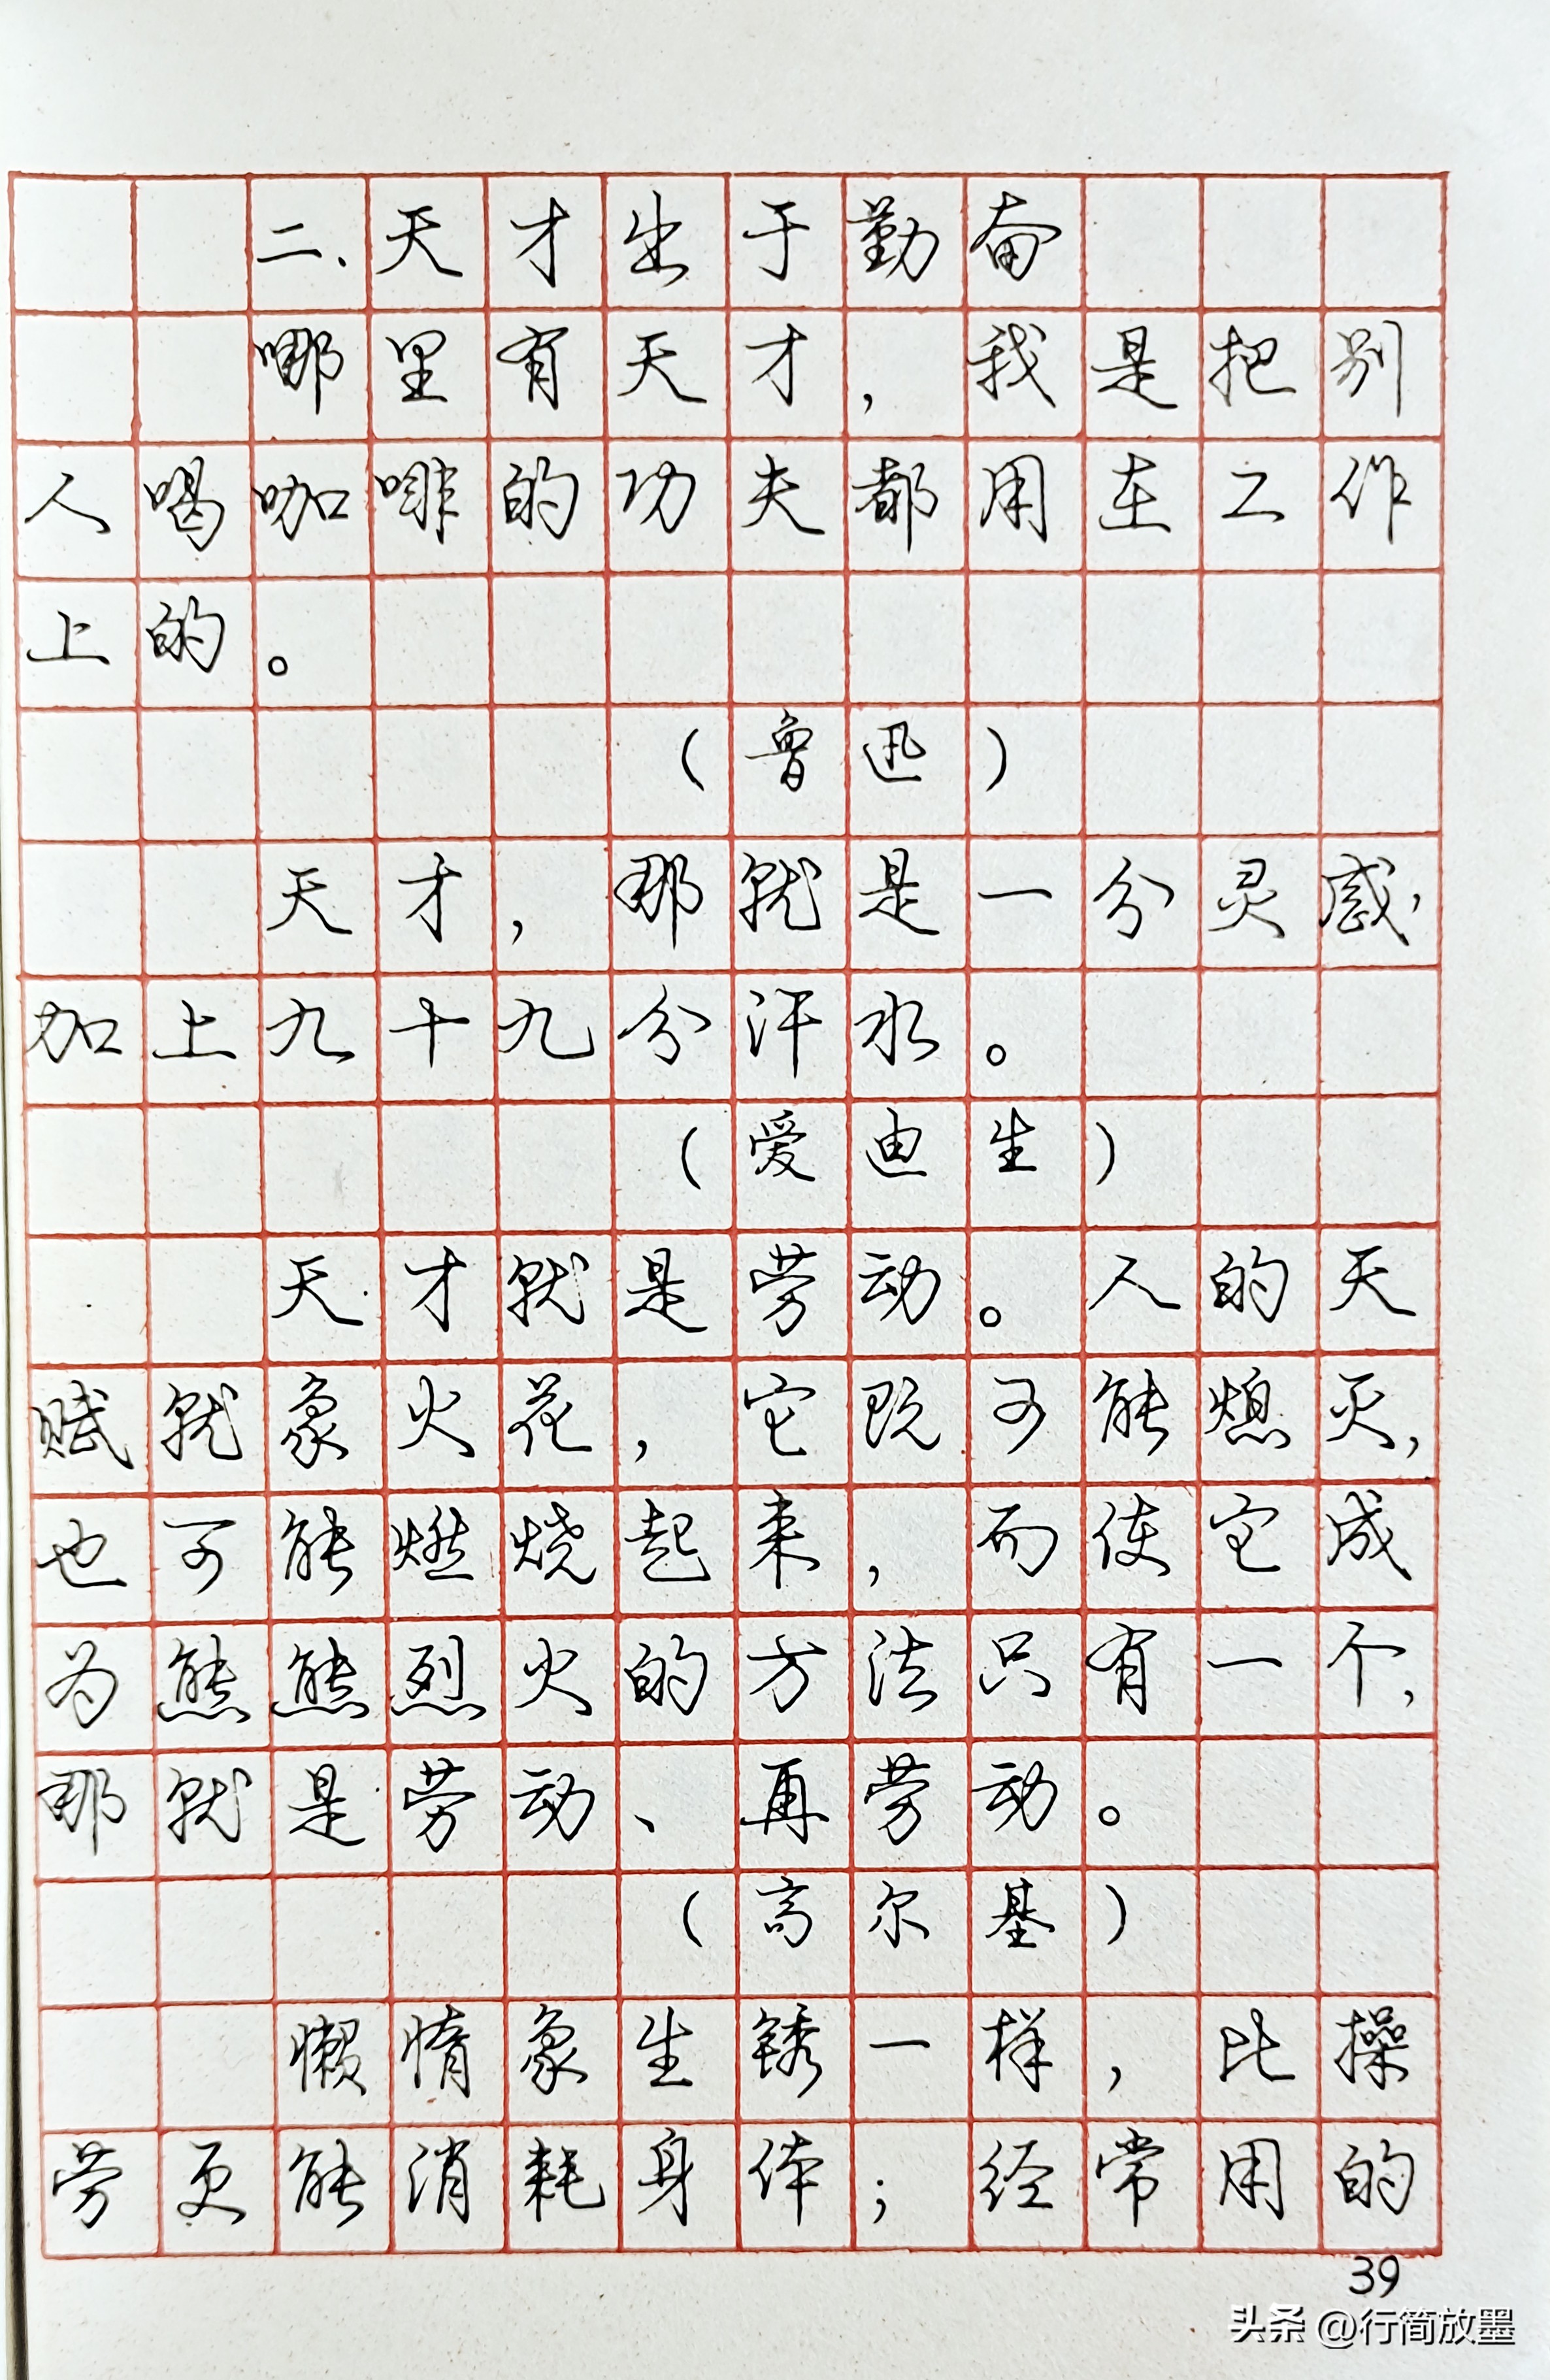 二、天才出于勤奋
哪里有天才，我是把别
人喝咖啡的功夫都用在工作
上的。
（鲁迅）
天才，那就是一分灵感，
加上九十九分汗水。
（爱迪生）
天才就是劳动。人的天
赋就象火花，它既可能熄灭，
也可能燃烧起来，而使它成
为熊熊烈火的方法只有一个，
那就是劳动、再劳动。
（高尔基）
懒惰象生锈一样，比操
劳更能消耗身体；经常用的
39
头条 @行简放墨